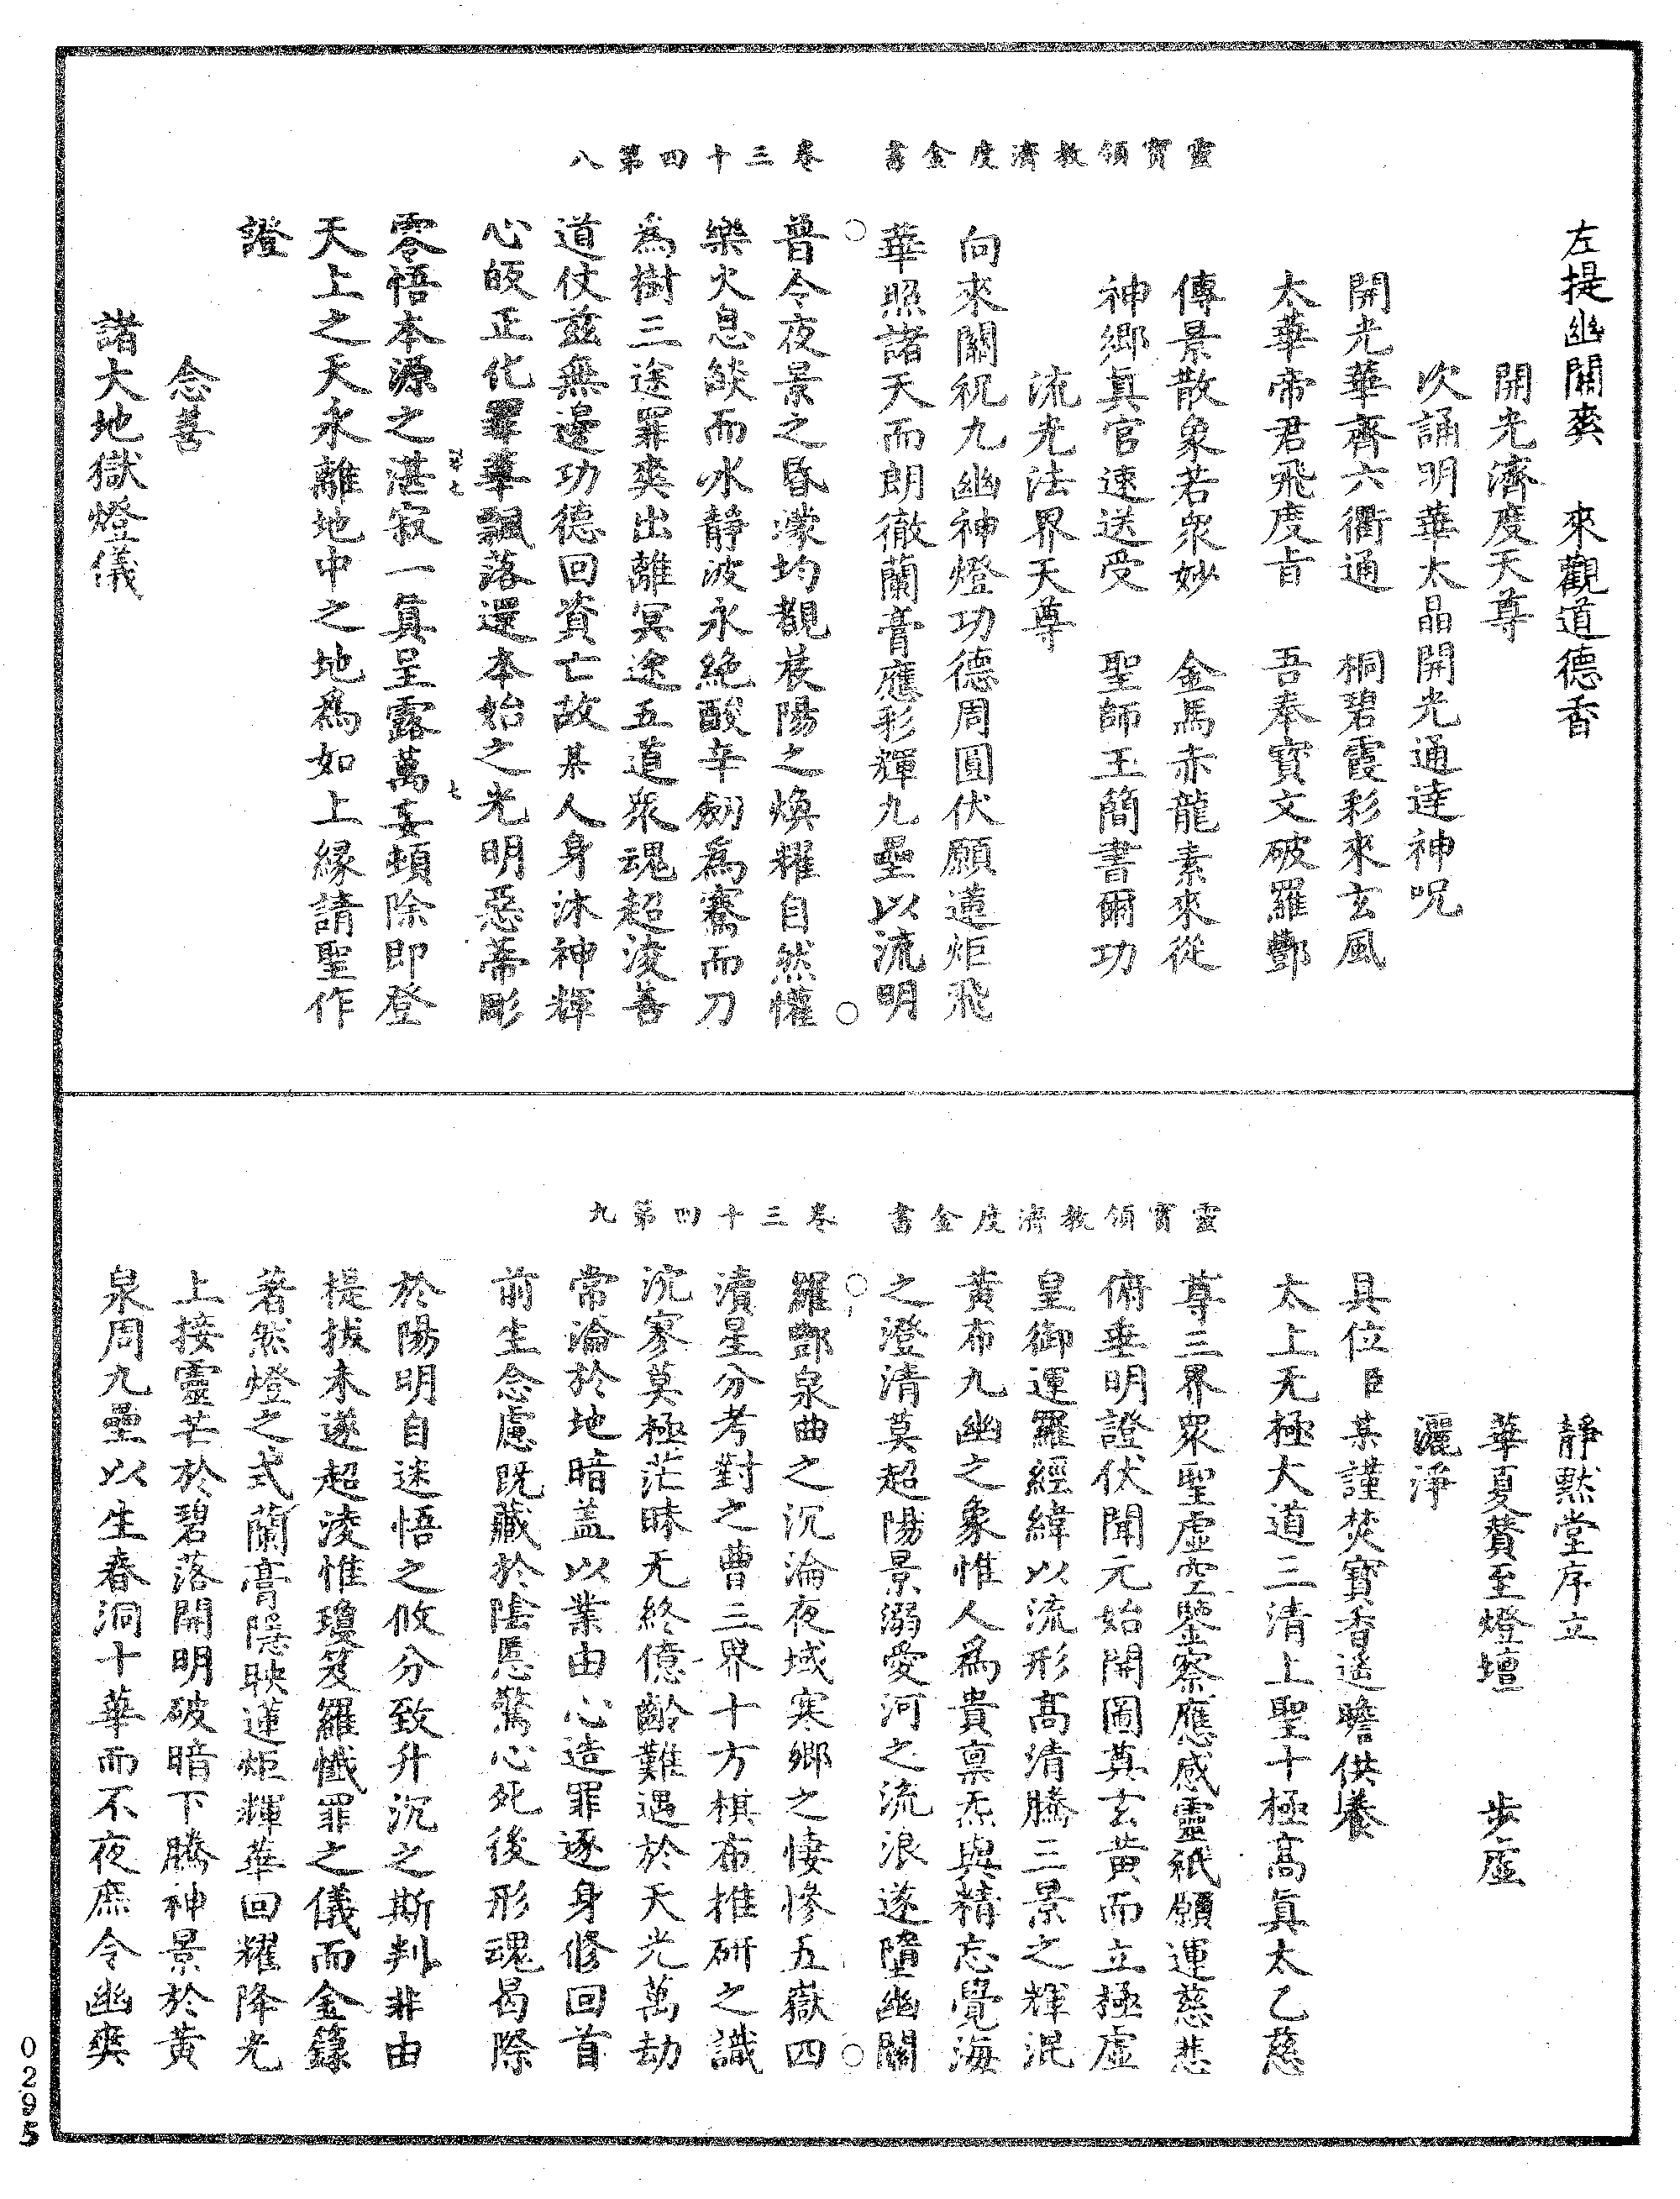 靈寶領教濟度金書　卷三十四第八
左提幽關爽　來觀道德香
開光濟度天尊
次誦明華太晶開光通達神呪
開光華齊六衢通　桐碧霞彩來玄風
太華帝君飛度旨　吾奉寶文破羅酆
傳景散象若眾妙　金馬赤龍素來從
神鄉真官速送受　聖師玉簡書爾功
流光法界天尊
向來關祝九幽神燈功德周圓伏願蓮炬飛
華照諸天而朗徹蘭膏應彩輝九壘以流明
普令夜景之昏濛均覩晨陽之煥耀自然懽
樂火息燄而冰靜波永絕酸辛劒為騫而刀
為樹三途罪爽出離冥途五道眾魂超淩善
道仗茲無邊功德回資亡故某人身沐神輝
心皈正化罪華飄落還本始之光明惡蒂彫
零悟本源之湛寂一真呈露萬妄頓除即登
天上之天永離地中之地為如上緣請聖作
證
念善
諸大地獄燈儀
靈寶領教濟度金書　卷三十四第九
靜默堂序立
華夏贊至燈壇　步虛
灑淨
具位臣某謹焚寶香遙瞻供養
太上无極大道三清上聖十極高真太乙慈
尊三界眾聖虛空鑒察應感靈祇願運慈悲
俯垂明證伏聞元始開圖奠玄黃而立極虛
皇御運羅經緯以流形高清騰三景之輝混
黃布九幽之象惟人為貴禀炁與精忘覺海
之澄清莫超陽景溺愛河之流浪遂墮幽關
羅酆泉曲之沉淪夜域寒鄉之悽慘五嶽四
瀆星分考對之曹三界十方棋布推研之識
沉寥莫極茫昧无終億齡難遇於天光萬劫
常淪於地暗盖以業由心造罪逐身修回首
前生念慮既藏於陰慝驚心死後形魂曷際
於陽明自迷悟之攸分致升沉之斯判非由
提拔未遂超淩惟瓊笈羅懺罪之儀而金籙
著然燈之式蘭膏隱映蓮炬輝華回耀降光
上接靈芒於碧落開明破暗下騰神景於黃
泉周九壘以生春洞十華而不夜庶令幽爽
0295